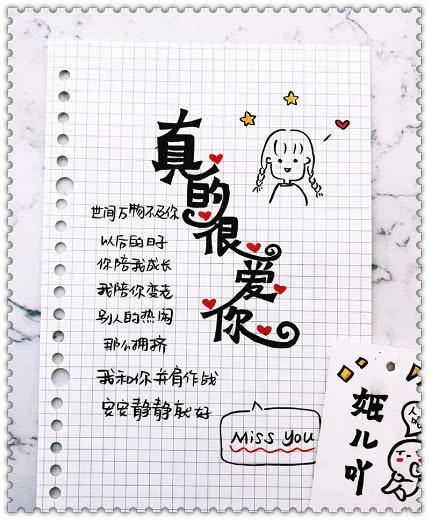 真的很爱你
世间万物不及你
以后的日子
你陪我成长
我陪你变老
别人的热闹
那么拥挤
我和你并肩作战
安安静静就好
Miss you
姬儿吖